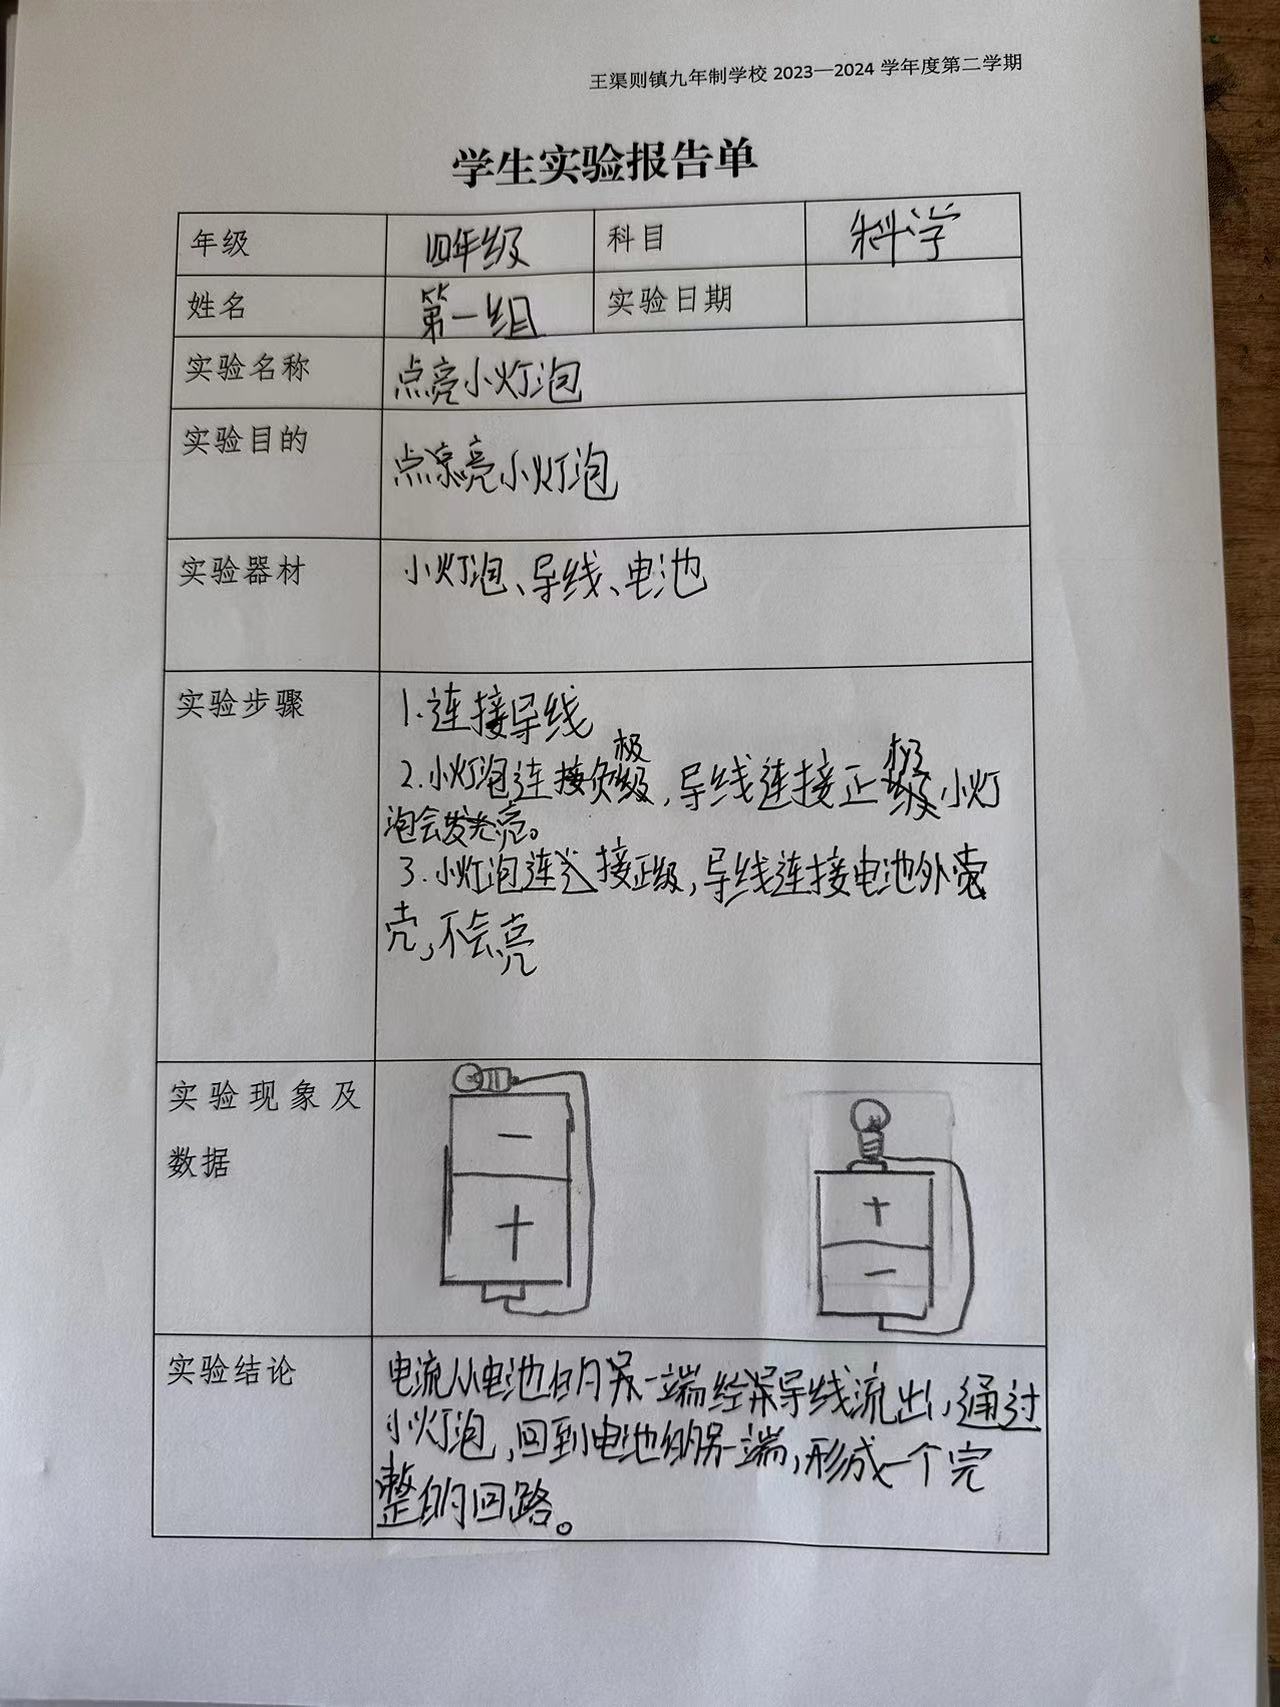 王渠则镇九年制学校 2023—2024 学年度第二学期
学生实验报告单
年级 四年级 科目 科学
姓名 第一组 实验日期
实验名称 点亮小灯泡
实验目的 点亮小灯泡
实验器材 小灯泡、导线、电池
实验步骤 1.连接导线
2.小灯泡连接负极,导线连接正极小灯
泡会发光亮。
3.小灯泡连接正级,导线连接电池外
壳,不会亮
实验现象及
数据
− +
+ −
实验结论 电流从电池的另一端经导线流出,通过
小灯泡,回到电池的另一端,形成一个完
整的回路。